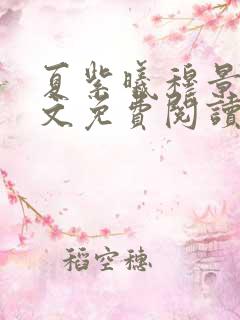 夏紫曦穆景
文免費閱讀
稻空穗